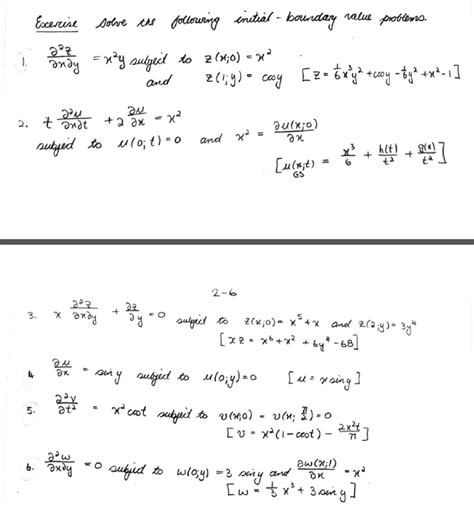 Exercise solve the following initial - boundary value problems.
1. ∂²z/∂x∂y = x²y subject to z(x;0) = x²
and z(1;y) = cosy [z = 1/6 x³y² + cosy - 1/6 y² + x² - 1]
2. t ∂²u/∂x∂t + 2 ∂u/∂x = x²
subject to u(0;t) = 0 and x² = ∂u(x;0)/∂x
[u(x;t) GS = x³/6 + h(t)/t² + g(x)/t²]
2-6
3. x ∂²z/∂x∂y + ∂z/∂y = 0 subject to z(x;0) = x⁵ + x and z(2;y) = 3y⁴
[xz = x⁶ + x² + 6y⁴ - 68]
4 ∂u/∂x = siny subject to u(0;y) = 0 [u = x siny]
5. ∂²v/∂t² = x² cost subject to v(x;0) = v(x; π/2) = 0
[v = x²(1 - cost) - 2x²t/π]
6. ∂²w/∂x∂y = 0 subject to w(0;y) = 3 siny and ∂w(x;1)/∂x = x²
[w = 1/3 x³ + 3 sin y]